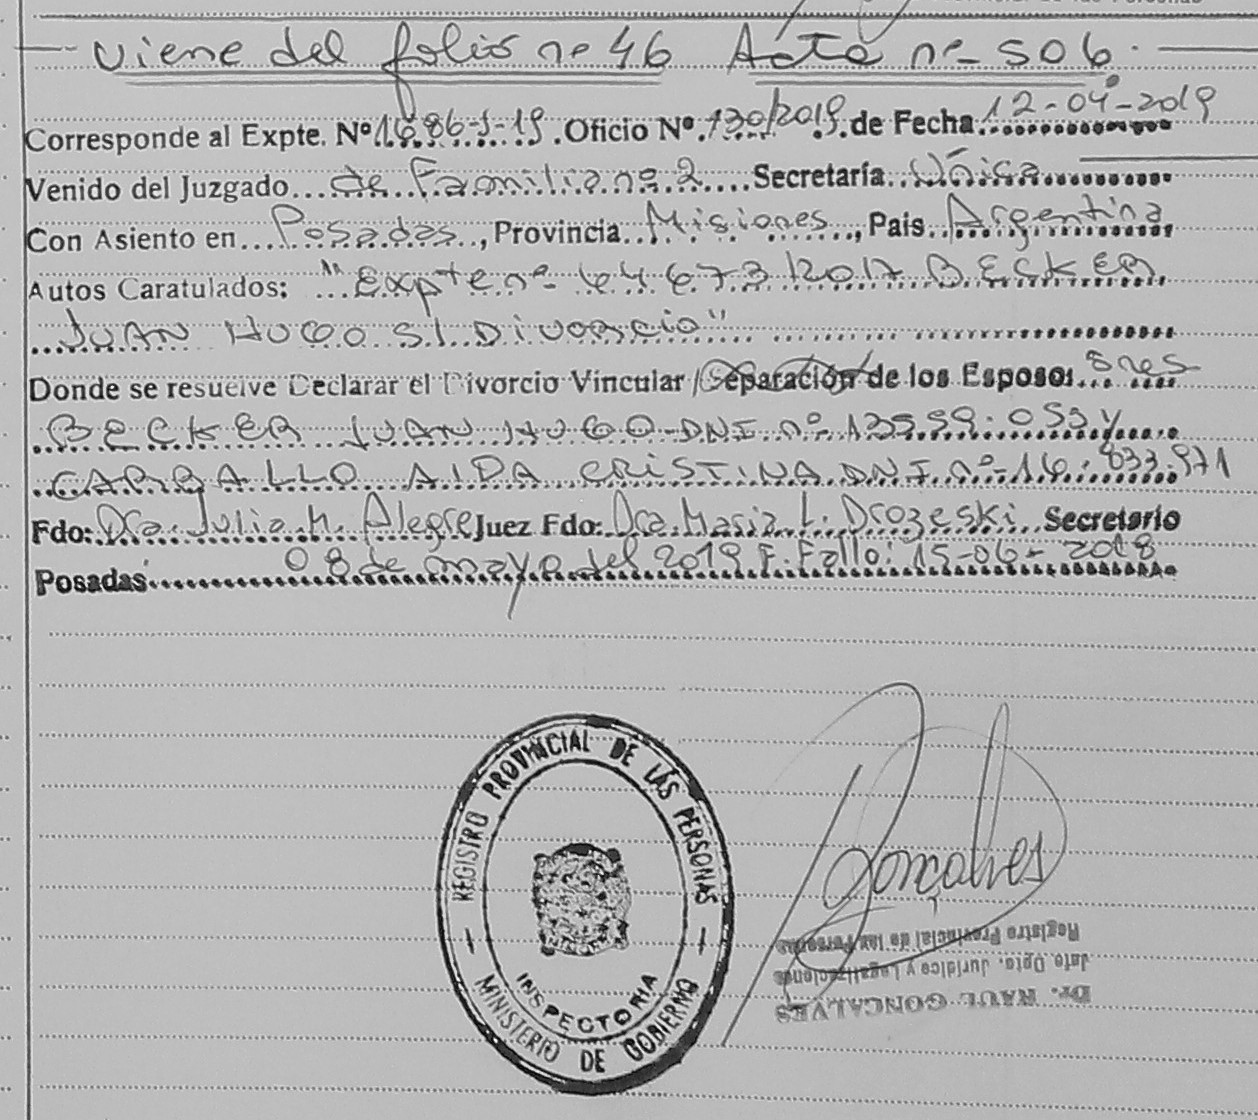 Viene del folio nº 46 Acta nº 506.
Corresponde al Expte. Nº 1686-J-19. Oficio Nº. 130/2019. de Fecha 12-04-2019
Venido del Juzgado de Familia nº 2 Secretaría Única
Con Asiento en Posadas, Provincia Misiones, Pais Argentina
Autos Caratulados: "Expte nº 64673/2017 BECKER
JUAN HUGO S/ Divorcio"
Donde se resuelve Declarar el Divorcio Vincular / Separación de los Esposos Sres
BECKER JUAN HUGO DNI nº 13.559.055 y
CARBALLO AIDA CRISTINA DNI nº 16.833.971
Fdo: Dra. Julia M. Alegre Juez Fdo: Dra. Maria L. Drozeski Secretario
Posadas 08 de mayo del 2019 F. Fallo: 15-06-2018
REGISTRO PROVINCIAL DE LAS PERSONAS
INSPECTORIA
MINISTERIO DE GOBIERNO
Gonçalves
Dr. RAUL GONCALVES
Jefe Dpto. Juridico y Legalizaciones
Registro Provincial de las Personas